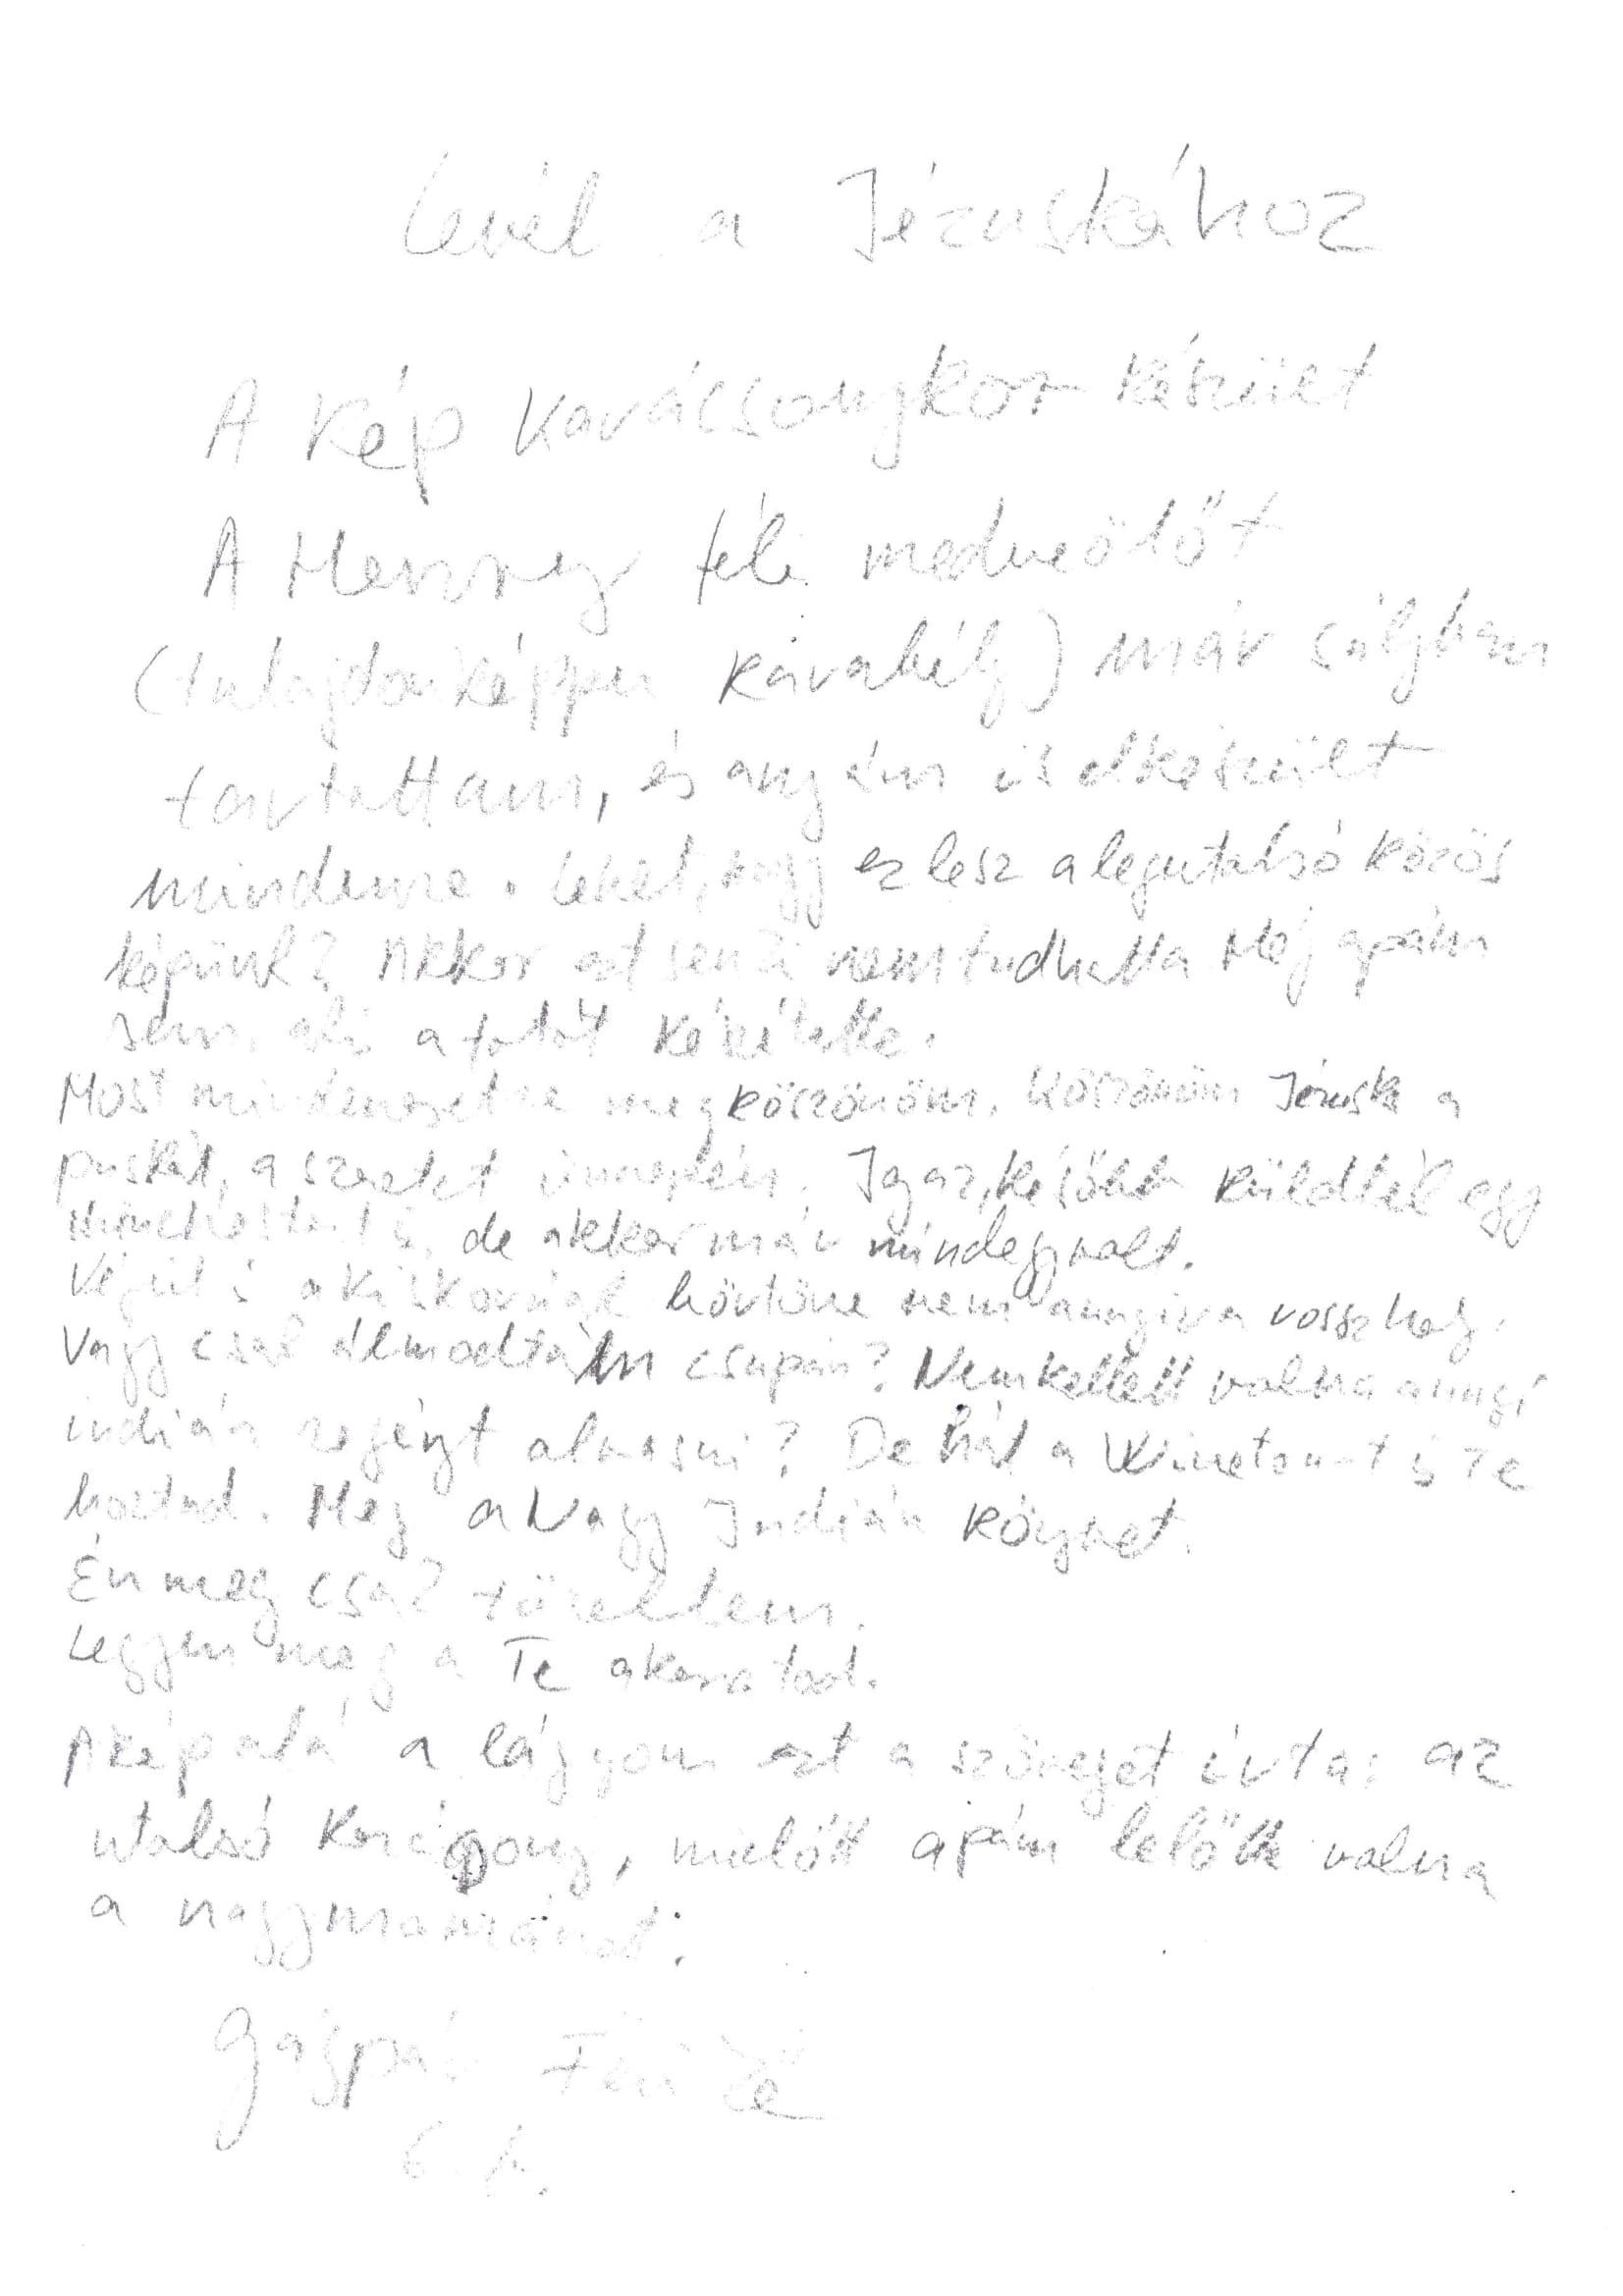 Levél a Jézuskához
A Kép Karácsonykor készült
A Henry féle medveölőt
(tulajdonképpen karabély) már súlyban
tartottam, és anyám is elkészült
mindenre. Lehet, hogy ez lesz a legutolsó közös
képünk? Akkor ezt senki nem tudhatta Még apám
sem, aki a fotót készítette.
Most mindenesetre megköszönöm. Köszönöm Jézuska a
puskát, a szeretet ünnepén. Igaz, később küldtél egy
Winchestert is, de akkor már mindegy volt.
Végül is a kiskorúak börtöne nem annyira rossz hely.
Vagy csak álmodtam csupán? Nem kellett volna annyi
indián regényt olvasni? De hát a Winetou-t is Te
hoztad. Meg a Nagy Indián könyvet.
Én meg csak tüzeltem.
Legyen meg a Te akaratod.
A kép alá a lágyom ezt a szöveget írta: az
utolsó Karácsony, mielőtt apám lelőtte volna
a nagymamámat.
Gáspár
6. b.